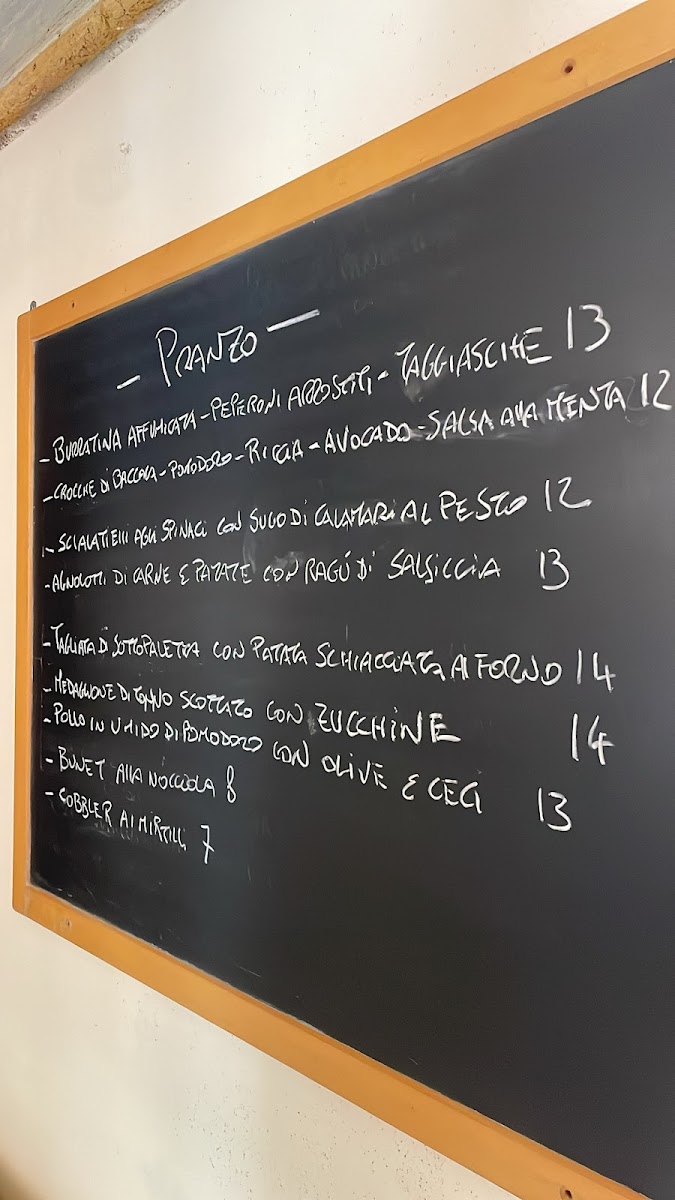 - PRANZO -
- BURRATINA AFFUMICATA - PEPERONI ARROSTITI - TAGGIASCHE 13
- CROCCHE DI BACCALA - POMODORO - RICCIA - AVOCADO - SALSA ALLA MENTA 12
- SCIALATIELLI AGLI SPINACI CON SUGO DI CALAMARI AL PESTO 12
- AGNOLOTTI DI CARNE E PATATE CON RAGÚ DI SALSICCIA 13
- TAGLIATA DI SOTTOPALETTA CON PATATA SCHIACCIATA AL FORNO 14
- MEDAGLIONE DI TONNO SCOTTATO CON ZUCCHINE 14
- POLLO IN UMIDO DI POMODORO CON OLIVE E CECI 13
- BUNET ALLA NOCCIOLA 8
- COBBLER AI MIRTILLI 7